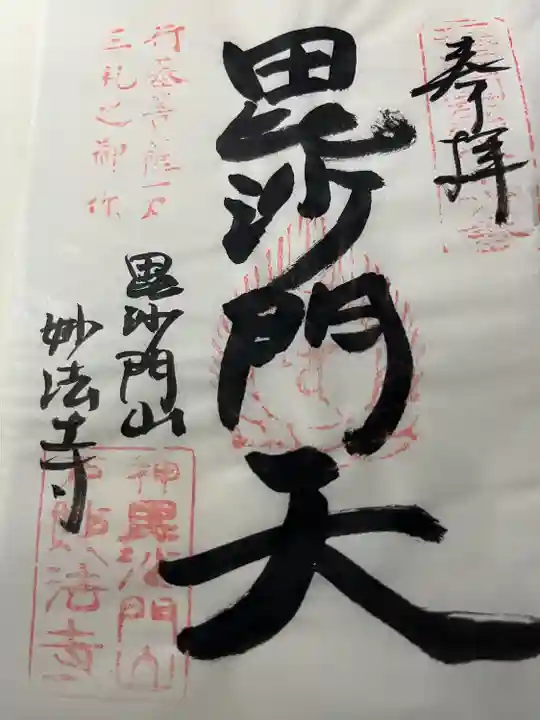 奉拝
毘沙門天
行基菩薩一刀
三礼之御作
毘沙門山
妙法寺
神
毘沙門山
妙法寺